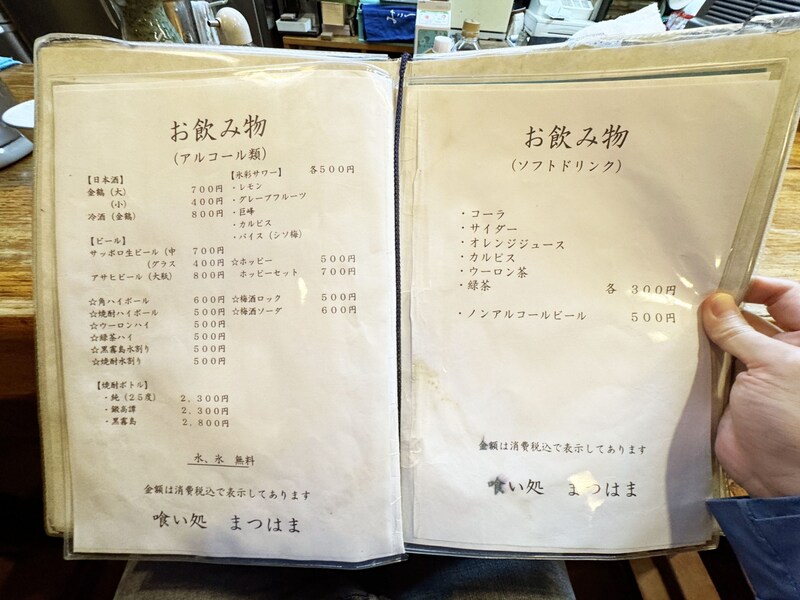 お飲み物
(アルコール類)
【日本酒】
金鶴 (大) 700円
(小) 400円
冷酒 (金鶴) 800円
【ビール】
サッポロ生ビール (中 700円
(グラス 400円
アサヒビール (大瓶) 800円
☆角ハイボール 600円
☆焼酎ハイボール 500円
☆ウーロンハイ 500円
☆緑茶ハイ 500円
☆黒霧島水割り 500円
☆焼酎水割り 500円
【焼酎ボトル】
・純 (25度) 2,300円
・鍛高譚 2,300円
・黒霧島 2,800円
【氷彩サワー】 各500円
・レモン
・グレープフルーツ
・巨峰
・カルピス
・バイス (シソ梅)
☆ホッピー 500円
ホッピーセット 700円
☆梅酒ロック 500円
☆梅酒ソーダ 600円
水、氷 無料
金額は消費税込で表示してあります
喰い処 まつはま
お飲み物
(ソフトドリンク)
・コーラ
・サイダー
・オレンジジュース
・カルピス
・ウーロン茶
・緑茶 各 300円
・ノンアルコールビール 500円
金額は消費税込で表示してあります
喰い処 まつはま